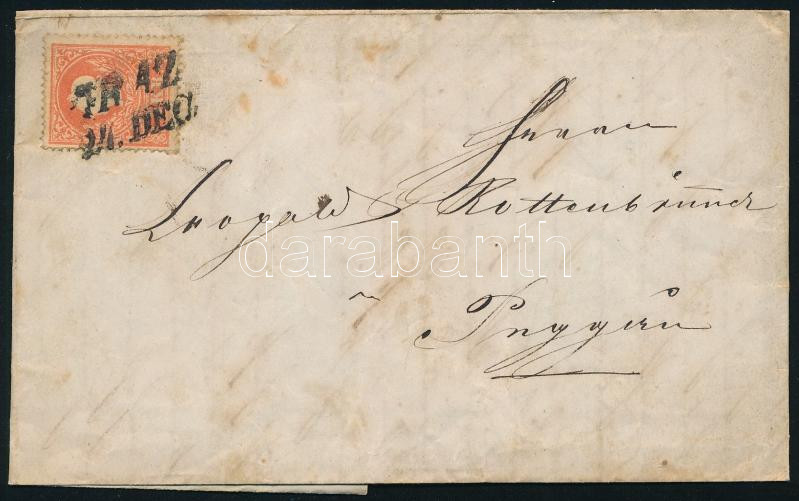 GRAZ
24. DEC.
Herrn
Leopold Rottenbrunner
in
Peggau
darabanth